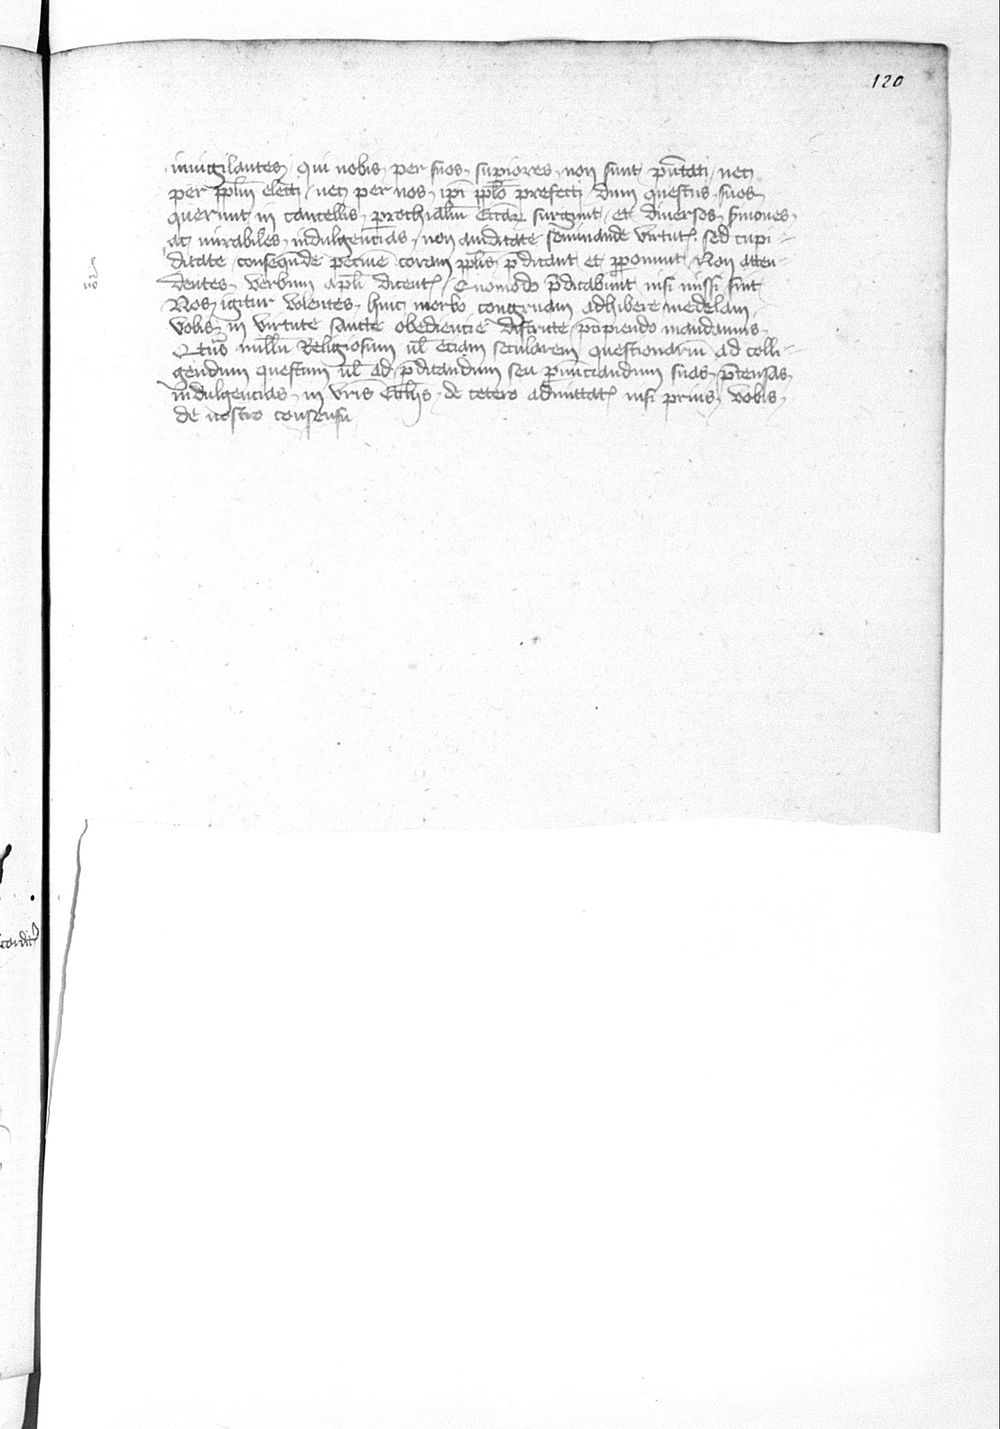 120
invigilantes, qui nobis per suos supiores non sunt pn̄tati, nec
per ppl̄m electi, nec per nos, ipi ppl̄o prefecti, dum questus suos
querunt in cancellis prochialiū Eccār surgunt, et diversos s̄mones,
ac mirabiles, indulgencias, non aviditate seminande virtut. sed cupi-
ditate, consequēde pecūie coram ppl̄is pdicant et pponunt, Non atten-
dentes, verbum apl̄i dicent, Quomodo p̄dicabunt nisi missi sint
no
Nos igitur volentes, huic morbo congruam adhibere medelam,
vobis, in virtute sancte obediencie districte, p̄cipiendo mandamus,
Qtin9 nullū Religiosum ul̄ eciam secularem questionariū ad colli-
gendum questum ul̄ ad p̄dicandum seu pnūciandum suas, p̄tensas,
indulgencias, in vr̄is Eccl̄iis, de cetero admittat nisi prius, vobis,
de nostro consensu